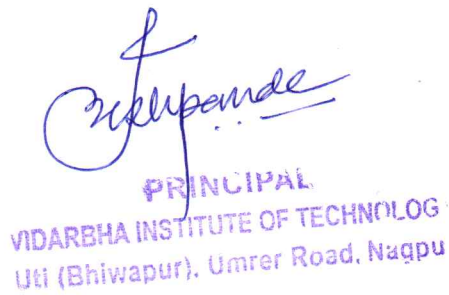 PRINCIPAL
VIDARBHA INSTITUTE OF TECHNOLOG
Uti (Bhiwapur), Umrer Road, Nagpu